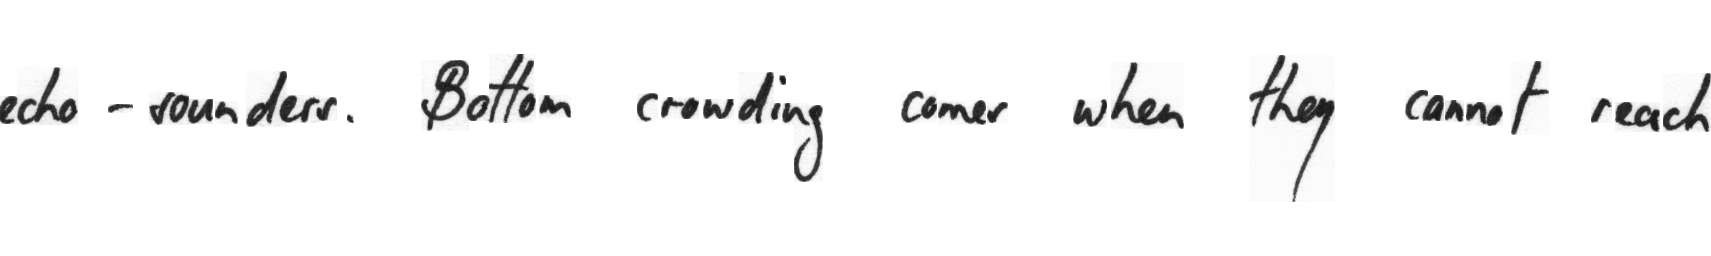 echo-sounders. Bottom crowding comes when they cannot reach